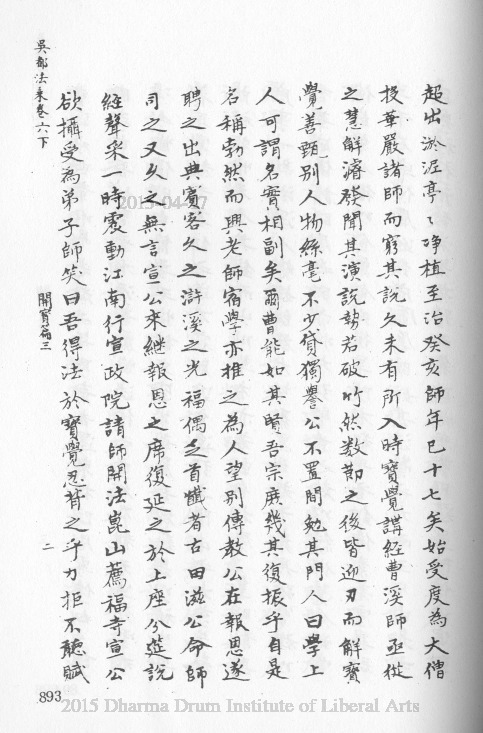 吳都法乘卷六下
超出淤泥亭〻淨植至治癸亥師年巳十七矣始受度為大僧
投華嚴諸師而窮其說久未有所入時寶覺講經曹溪師亟從
之慧解濬發聞其演說勢若破竹然数莭之後皆迎刃而解寶
覺善甄別人物絲毫不少貸獨譽公不置間勉其門人曰學上
人可謂名實相副矣爾曹能如其賢吾宗庶幾其復振乎自是
名稱勃然而興老師宿學亦推之為人望別傳教公在報恩遂
聘之出典賓客久之滸溪之光福偶乏首懺者古田滋公命師
司之又久之無言宣公來継報恩之席復延之於上座分筵說
經聲采一時震動江南行宣政院請師開法崑山薦福寺宣公
欲攝受為弟子師笑曰吾得法於寶覺忍背之乎力拒不聽賦
開寶篇三
二
893
2015-04-27
2015 Dharma Drum Institute of Liberal Arts